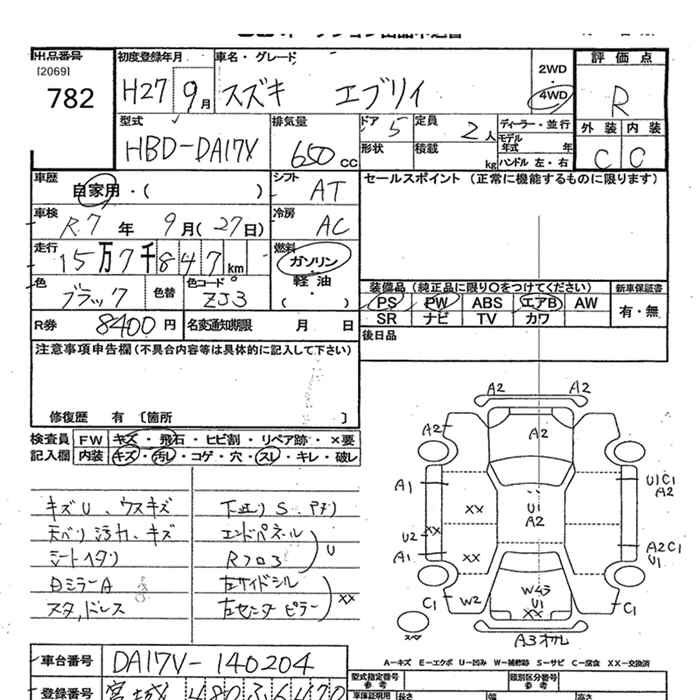 出品番号
[2069]
782
初度登録年月
H27 9月
車名・グレード
スズキ エブリイ
2WD
・
4WD
評価点
R
型式
HBD-DA17V
排気量
650 cc
ドア 5
定員 2人
形状
積載 kg
ディーラー・並行
モデル
年式 年
ハンドル 左・右
外装 内装
C C
車歴
自家用・( )
シフト
AT
車検
R.7年 9月(27日)
冷房
AC
走行
15万7千847km
燃料
ガソリン
軽油
( )
色
ブラック
色替
色コード
ZJ3
R券 8400円
名変通知期限 月 日
セールスポイント (正常に機能するものに限ります)
装備品 (純正品に限り○をつけてください)
PS PW ABS エアB AW
SR ナビ TV カワ
新車保証書
有・無
後日品
注意事項申告欄(不具合内容等は具体的に記入して下さい)
修復歴 有 〔箇所 〕
検査員 FW キズ・飛石・ヒビ割・リペア跡・×要
記入欄 内装 キズ・汚れ・コゲ・穴・スレ・キレ・破レ
キズU、ウスキズ
天バリ汚れ、キズ
シートヘタリ
ミラーA
スタッドレス
下廻りS、サビ
エンドパネル
Rフロア
U
左サイドシル
左センターピラー
XX
A2 A2
A2
A2
A1
U1C1
A2
XX
U1
A2
U2
XX
A1
XX
A2C1
U1
C1
W2
W43
U1
XX
C1
A3オサレ
A-キズ E-エクボ U-凹み W-補修跡 S-サビ C-腐食 XX-交換済
車台番号 DA17V-140204
登録番号 宮城 480 ふ 6470
型式指定番号
参考
類別区分番号
参考
車庫証明用
長さ
幅
高さ